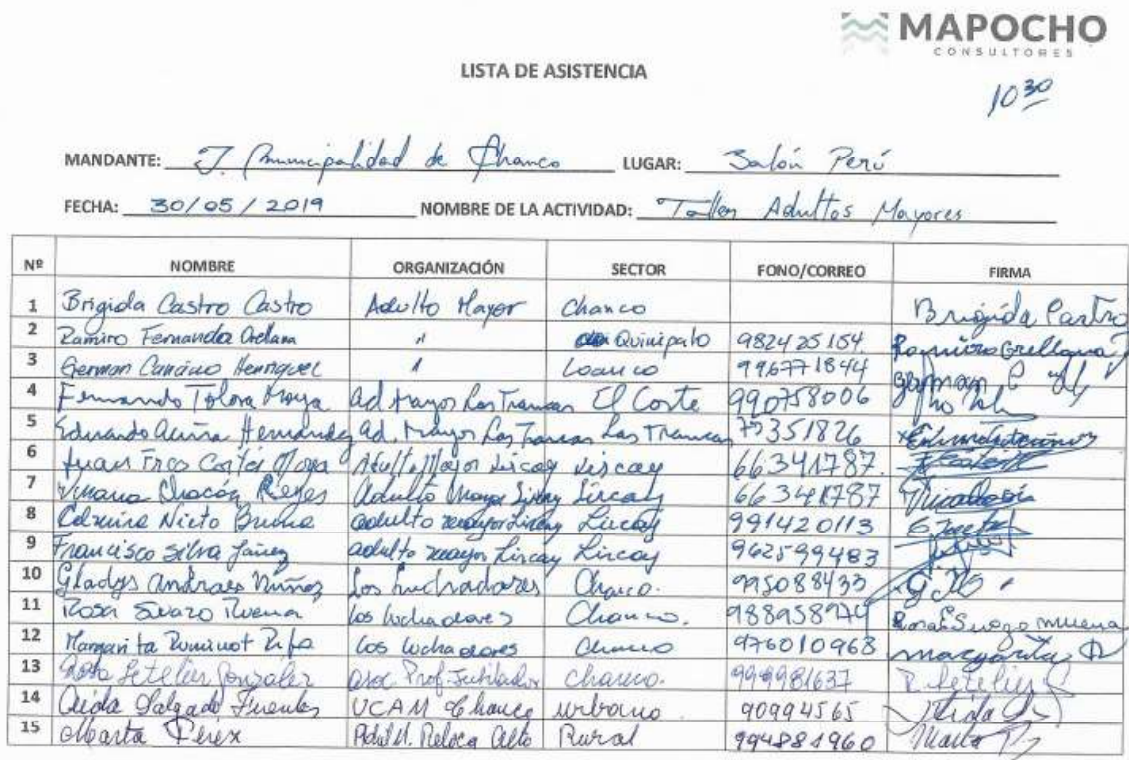 MAPOCHO
CONSULTORES
LISTA DE ASISTENCIA
10 30
MANDANTE: I. Municipalidad de Chanco LUGAR: Salón Perú
FECHA: 30/05/2019 NOMBRE DE LA ACTIVIDAD: Taller Adultos Mayores
Nº NOMBRE ORGANIZACIÓN SECTOR FONO/CORREO FIRMA
1 Brigida Castro Castro Adulto Mayor Chanco Brigida Castro
2 Ramiro Fernando Orellana " Quinipato 982425154 Ramiro Orellana
3 German Cancino Henriquez " Loanco 996771844 German C
4 Fernando Tolosa Moya ad Mayor Las Trancas El Corte 990758006
5 Eduardo Acuña Hernandez ad. Mayor Las Trancas Las Trancas 75351826
6 Juan Cortés Moya Adulto Mayor Lircay Lircay 66341787
7 Viviana Chacón Reyes adulto Mayor Lircay Lircay 66341787
8 Nieto adulto mayor Lircay Lircay 991420113
9 Francisco Silva Yañez adulto mayor Lircay Lircay 962599483
10 Gladys Andraes Muñoz Los Luchadores Chanco. 995088433
11 Rosa Suazo los luchadores Chanco. 988958974 Rosa Suazo
12 Margarita los luchadores Chanco 976010968 margarita
13 Rosa Letelier González asoc Prof. Jubilados Chanco. 999981637 R Letelier
14 Aida Salgado Fuentes UCAM Chanco urbano 90994565 Aida
15 Marta Pérez Adul M. Reloca Alto Rural 994881960 Marta P